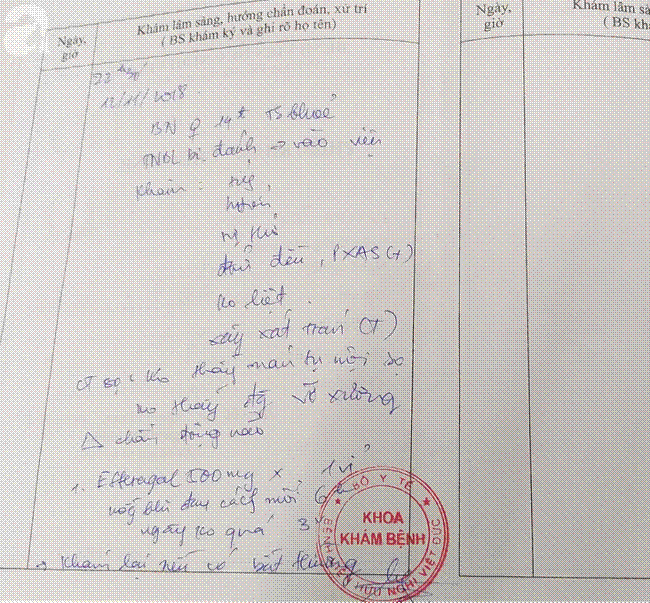 a
Ngày, giờ
Khám lâm sàng, hướng chẩn đoán, xử trí
( BS khám ký và ghi rõ họ tên)
Ngày, giờ
Khám lâm sà
( BS khá
12/11/2018
BN ♀ 14t TS khoẻ
TNBL bị đánh → vào viện
Khám : tỉnh,
đều, PXAS (+)
ko liệt.
xây xát trán (+)
CT sọ : Ko thấy máu tụ nội sọ
ko thấy đg vỡ xương
Δ chấn động não
1. Efferalgal 500mg x 1 vỉ
uống khi đau cách mỗi 6h
ngày ko quá 3v
→ Khám lại nếu có bất thường
BỘ Y TẾ
KHOA
KHÁM BỆNH
BỆNH VIỆN HỮU NGHỊ VIỆT ĐỨC